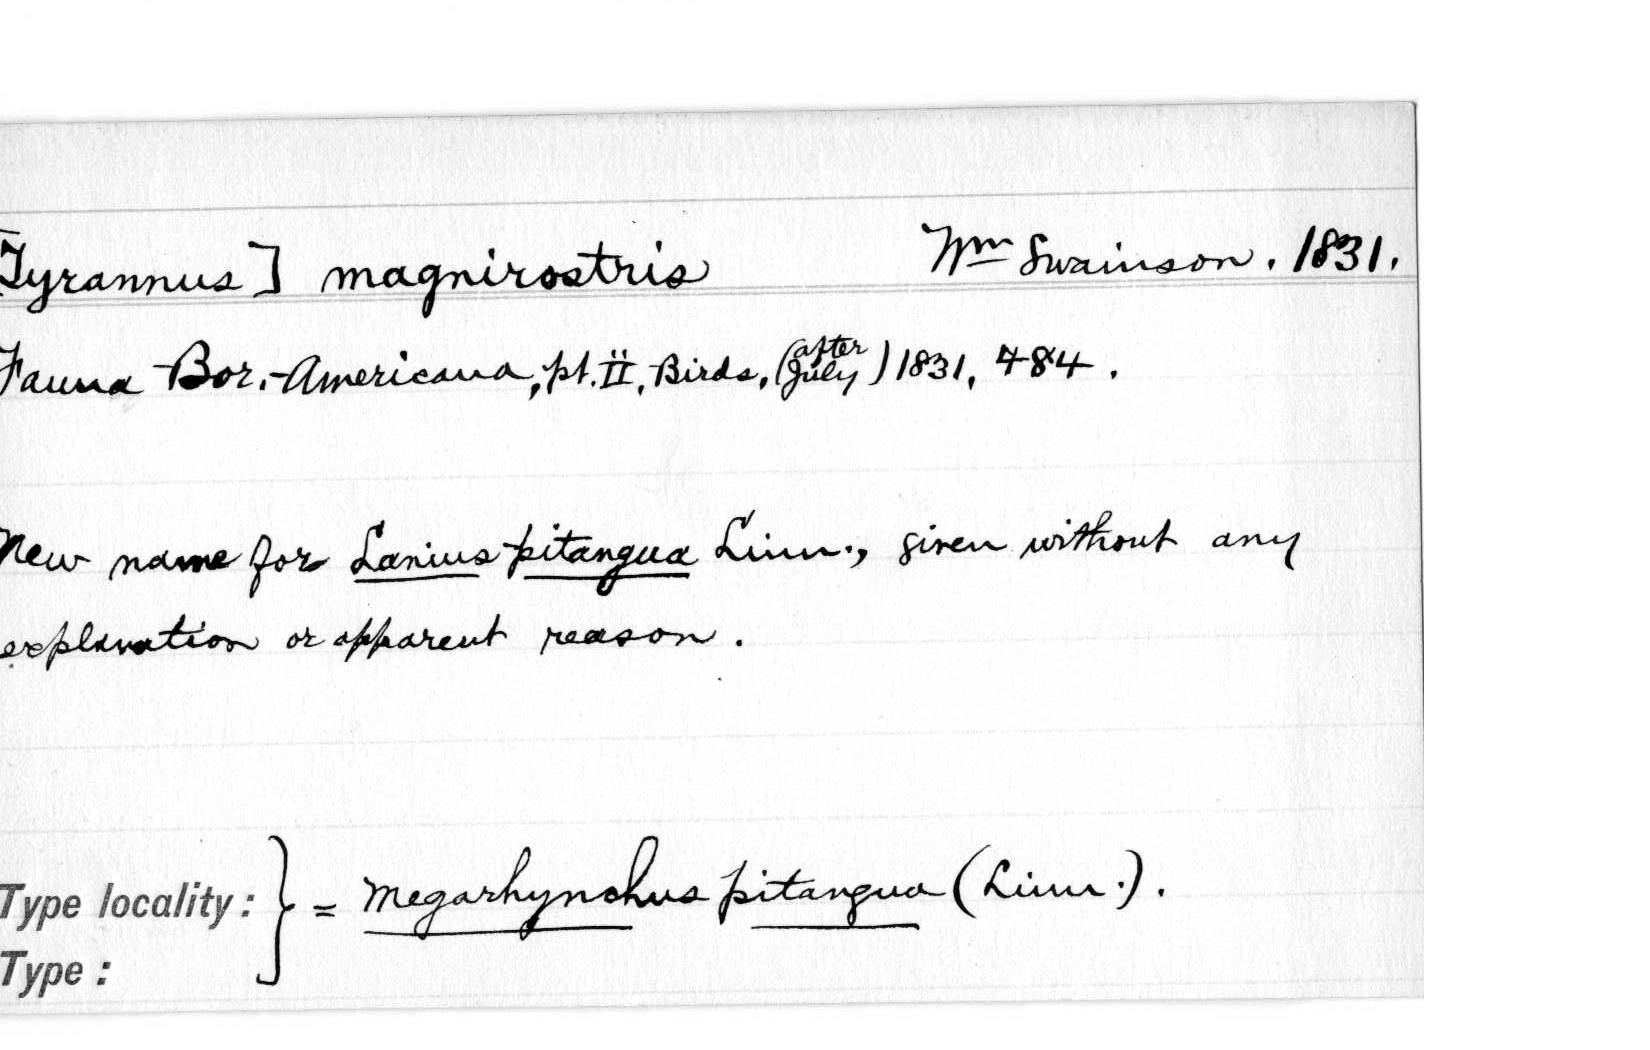 [Tyrannus] magnirostris Wm Swainson. 1831.
Fauna Bor.-Americana, pt. II, Birds, (after July) 1831, 484.
New name for Lanius pitangua Linn., given without any
explanation or apparent reason.
Type locality: } = Megarhynchus pitangua (Linn.).
Type: